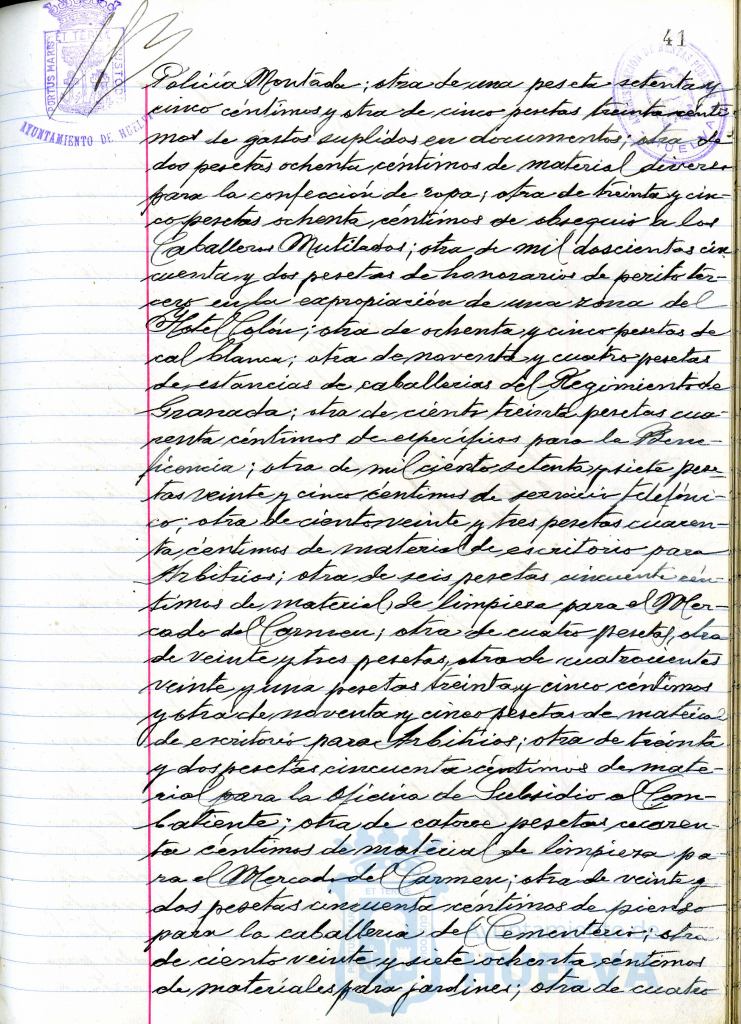 41
PORTUS MARIS ET TERRE CUSTODIA
AYUNTAMIENTO DE HUELVA
HUELVA
Policía Montada; otra de una peseta setenta y
cinco céntimos y otra de cinco pesetas treinta cénti
mos de gastos suplidos en documentos; otra de
dos pesetas ochenta céntimos de material diverso
para la confección de ropa; otra de treinta y cin
co pesetas ochenta céntimos de obsequio a los
Caballeros Mutilados; otra de mil doscientas cin
cuenta y dos pesetas de honorarios de perito ter-
cero en la expropiación de una zona del
Hotel Colón; otra de ochenta y cinco pesetas de
cal blanca; otra de noventa y cuatro pesetas
de estancias de caballerías del Regimiento de
Granada; otra de ciento treinta pesetas cua-
renta céntimos de específicos para la Bene-
ficencia; otra de mil ciento setenta y siete pese-
tas veinte y cinco céntimos de servicio telefóni-
co; otra de ciento veinte y tres pesetas cuaren-
ta céntimos de material de escritorio para
Arbitrios; otra de seis pesetas cincuenta cén-
timos de material de limpieza para el Mer-
cado del Carmen; otra de cuatro pesetas, otra
de veinte y tres pesetas, otra de cuatrocientas
veinte y una pesetas treinta y cinco céntimos
y otra de noventa y cinco pesetas de material
de escritorio para Arbitrios; otra de treinta
y dos pesetas cincuenta céntimos de mate-
rial para la Oficina de Subsidio al Com-
batiente; otra de catorce pesetas cuaren-
ta céntimos de material de limpieza pa-
ra el Mercado del Carmen; otra de veinte y
dos pesetas cincuenta céntimos de pienso
para la caballería del Cementerio; otra
de ciento veinte y siete ochenta céntimos
de materiales para jardines; otra de cuatro
HUELVA